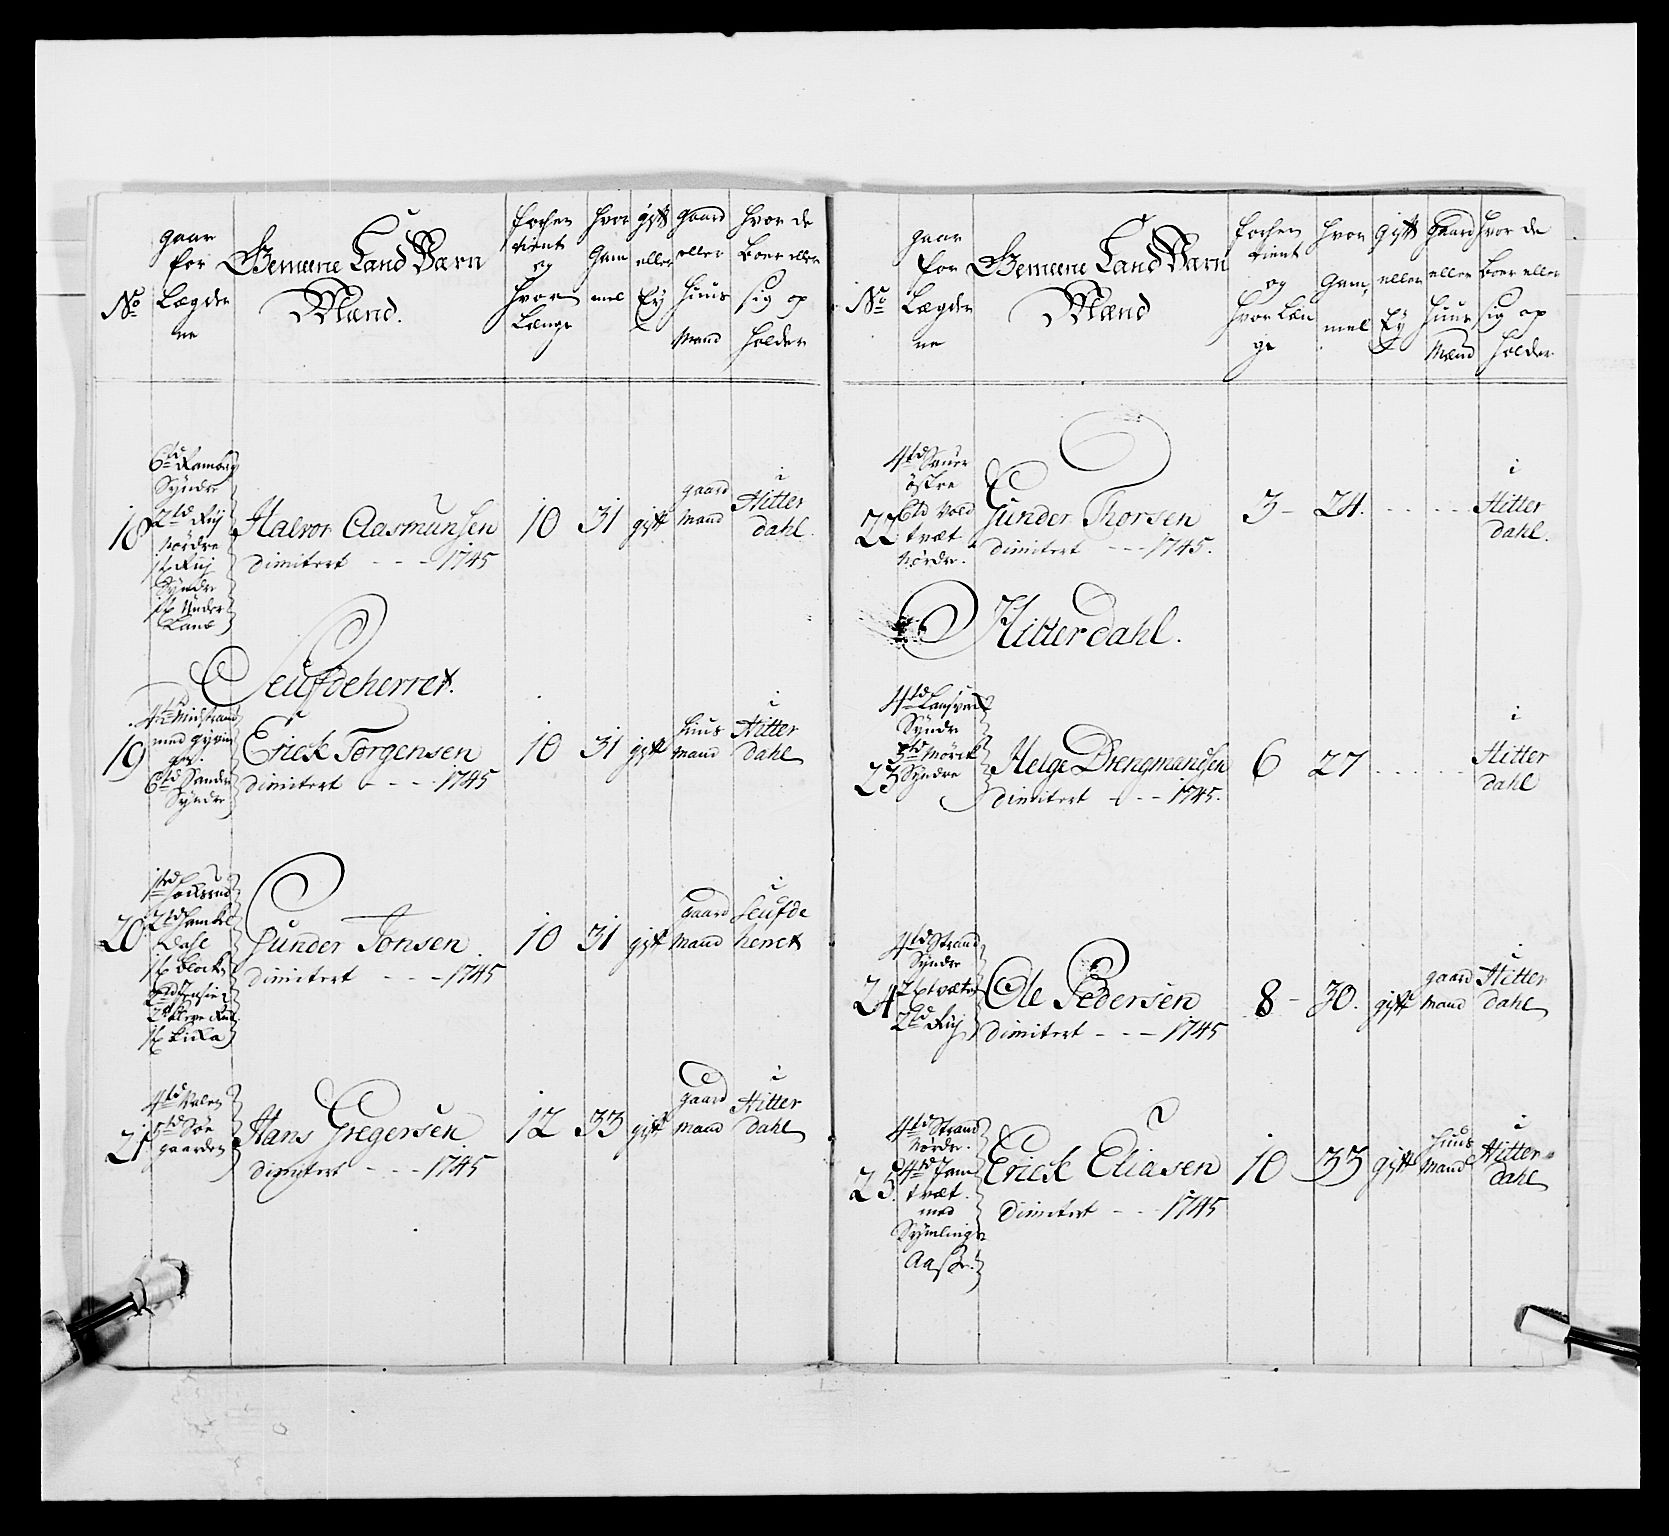 No
gaar
for
Lægder
ne
Gemeene Land Værn
Mænd.
forhen
tient
og
hvor
Længe
hvor
Gam
mel
gift
eller
Ey
gaard
eller
Huus
Mand
hvor de
boer eller
sig op
holder
18
6td
Syndre
2td Ruj
Nordre
Syndre
Halvor Aasmunsen
Dimitert - - - 1745
10
31
gift
gaard
Mand
i
Hitter
dahl.
Seufdeherret.
19
4td Midstrand
med
6td Sande
Syndre
Erick Torgensen
Dimitert - - - 1745
10
31
gift
Huus
Mand
i
Hitter
dahl
20
Dahl
Gunder Jonsen
Dimitert - - - 1745
10
31
gift
Gaard
Mand
i
Seufde
herret
21
4td Valen
Søe
gaarden
Hans Gregersen
Dimitert - - - 1745
12
33
gift
gaard
Mand
i
Hitter
dahl
No
gaar
for
Lægder
ne
Gemeene Land Værn
Mænd
forhen
tient
og
hvor Læn
ge
hvor
Gam,
mel
gift
eller
Ey
Gaard
eller
Huus
Mænd
hvor de
boer eller
sig op
holder
22
4td Sauer
østre
tvæt
Nordre.
Gunder Thorsen
Dimitert - - - 1745.
3 -
24.
- - - - -
i
Hitter
dahl.
Hitterdahl.
23
4td
Syndre
Mørck
Syndre
Helge Drengmandsen
Dimitert - - - 1745.
6
27
- - - - -
i
Hitter
dahl
24
4td Strand
Syndre
2td Ruj
Ole Pedersen
Dimitert - - - 1745
8 -
30.
gift
gaard
Mand
i
Hitter
dahl
25.
4td Strand
Nordre.
4td Jam
tvæt.
med
Aasse.
Erick Eliasen
Dimitert - - - 1745
10
33
gift
Huus
Mand
i
Hitter-
dahl